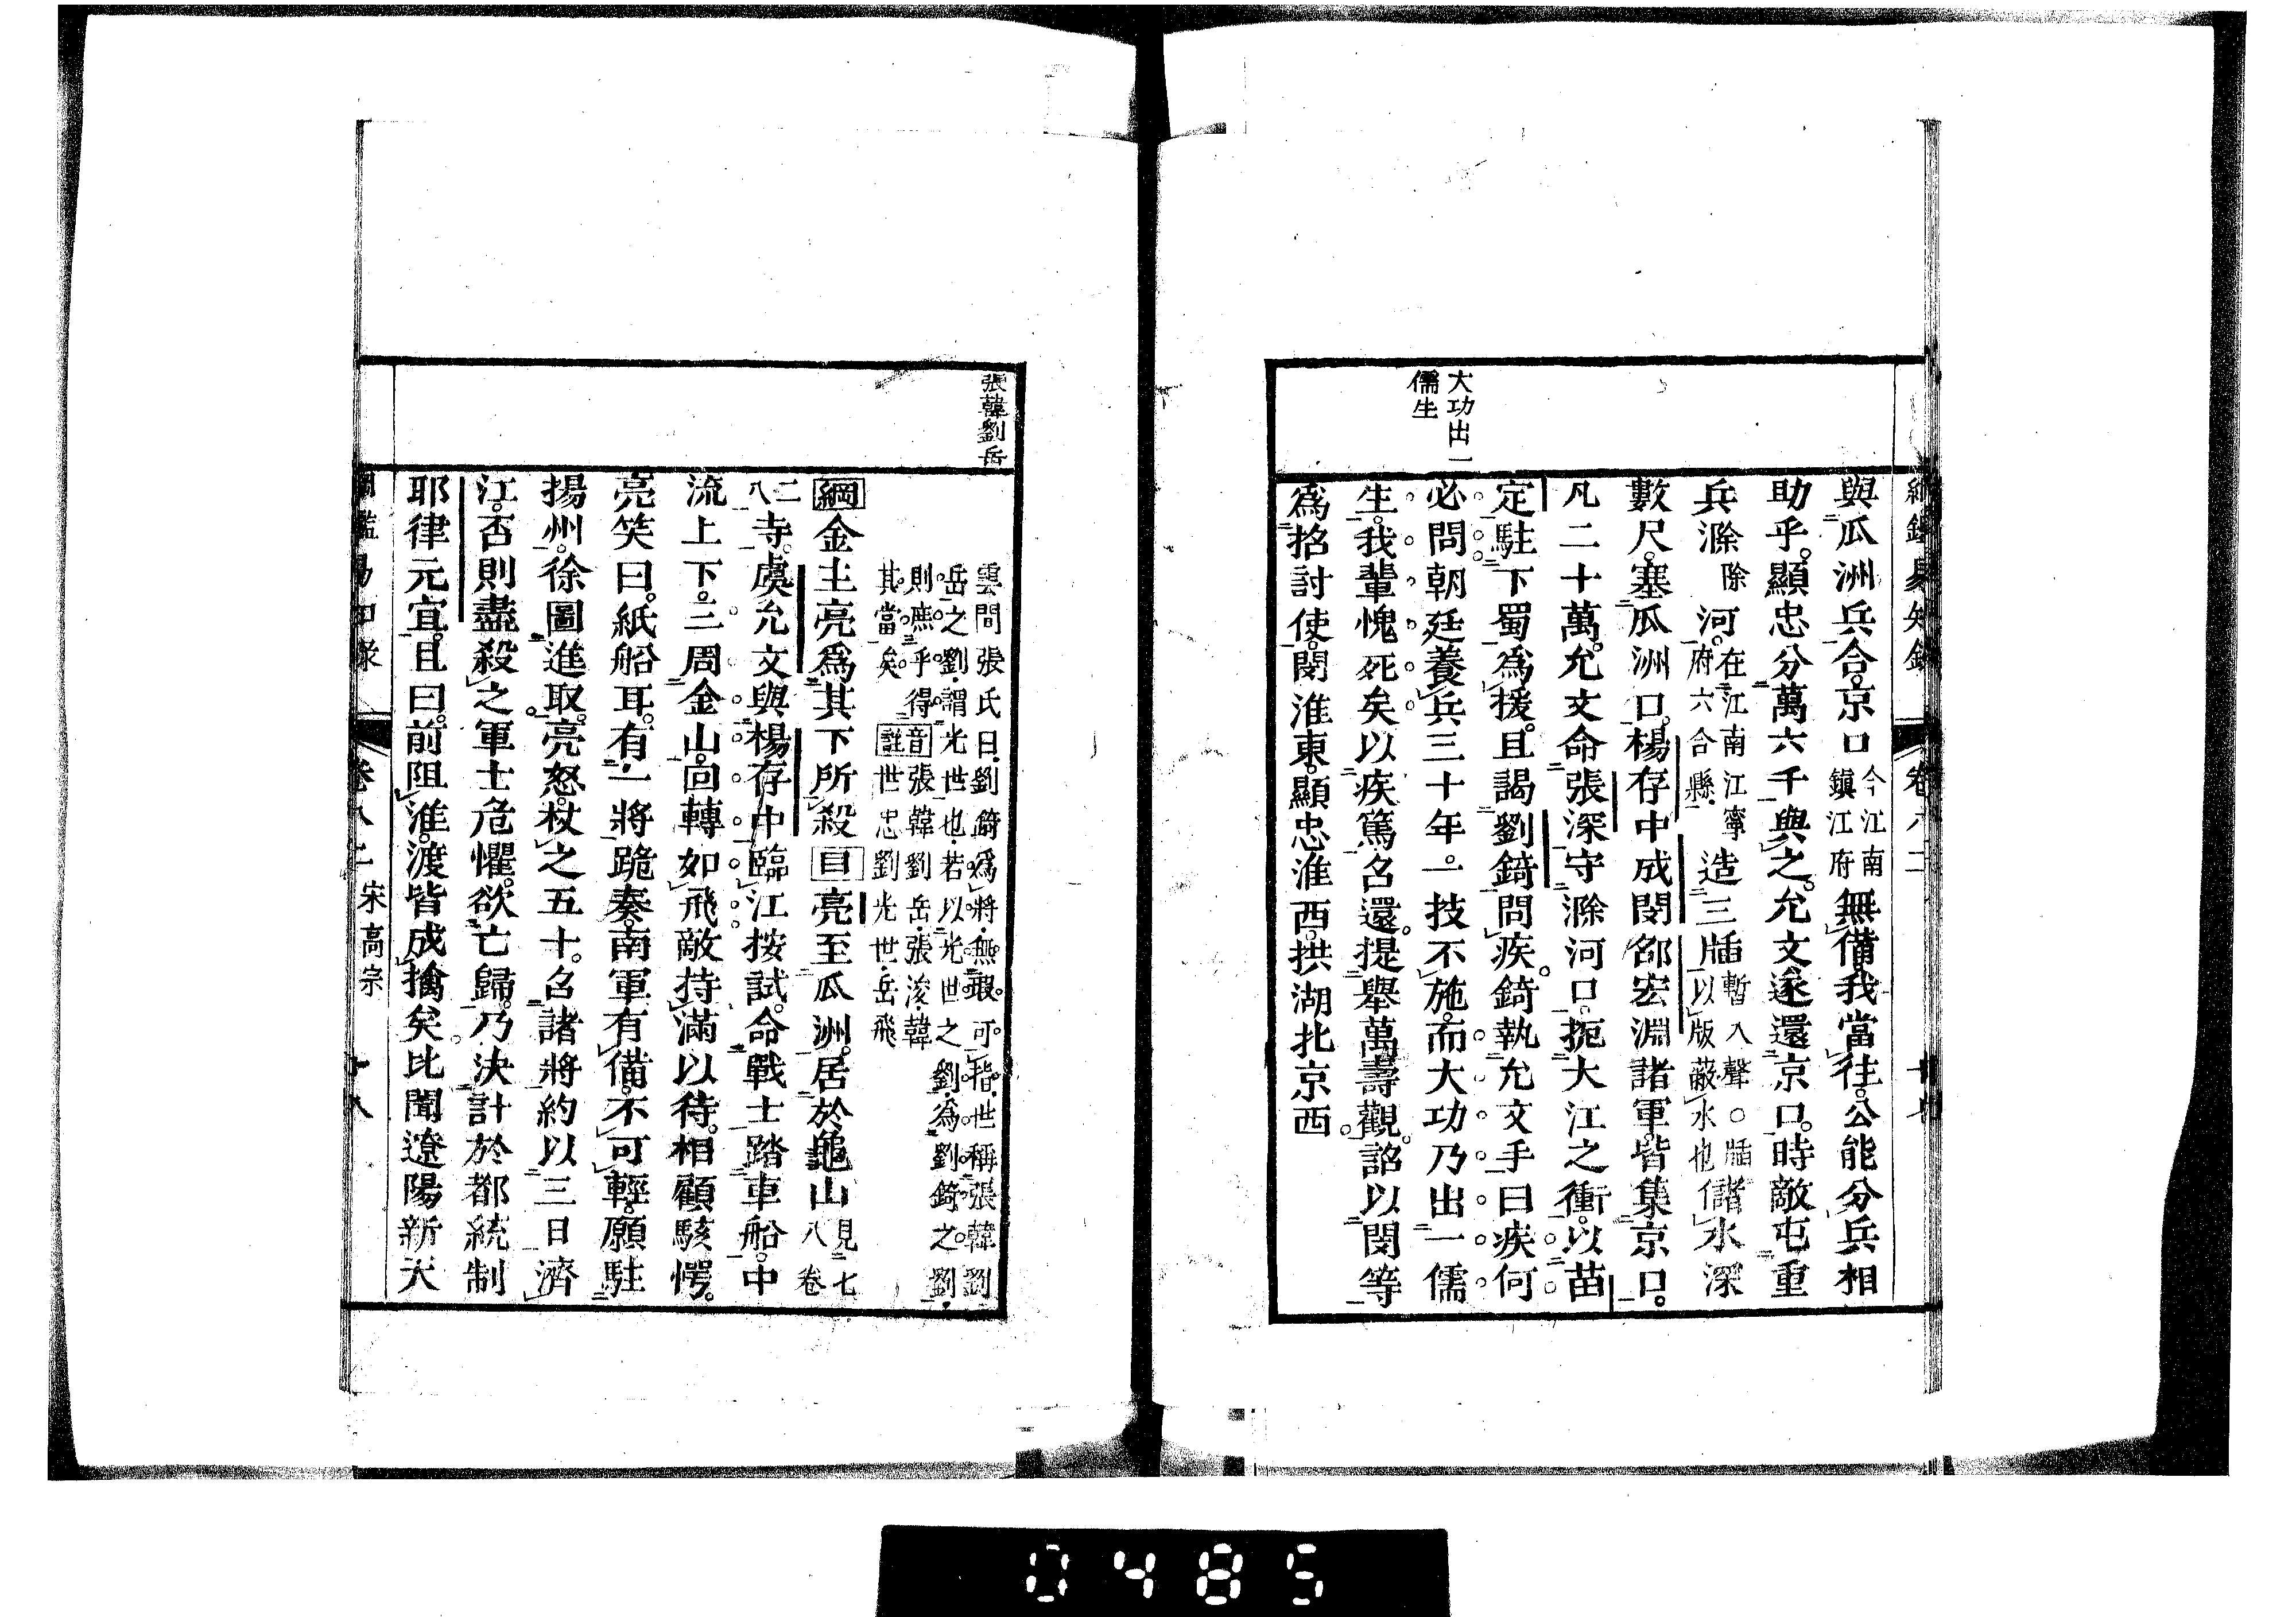 大功出一
儒生
與瓜洲兵合京口今江南鎮江府無備我當往公能分兵相
助乎顯忠分萬六千與之允文遂還京口時敵屯重
兵滁除河在江南江寧府六合縣造三牐暫入聲○牐以版蔽水也儲水深
數尺塞瓜洲口楊存中成閔邵宏淵諸軍皆集京口
凡二十萬允文命張深守滁河口扼大江之衝以苗
定駐下蜀爲援且謁劉錡問疾錡執允文手曰疾何
必問朝廷養兵三十年一技不施而大功乃出一儒
生我輩愧死矣以疾篤召還提舉萬壽觀詔以閔等
爲招討使閔淮東顯忠淮西拱湖北京西
張韓劉岳
雲間張氏曰劉錡爲將無瑕可指世稱張韓劉
岳之劉謂光世也若以光世之劉爲劉錡之劉
則庶乎得其當矣音註張韓劉岳張浚韓世忠劉光世岳飛
綱金主亮爲其下所殺目亮至瓜洲居於龜山見七八卷
二八寺虞允文與楊存中臨江按試命戰士踏車船中
流上下三周金山回轉如飛敵持滿以待相顧駭愕
亮笑曰紙船耳有一將跪奏南軍有備不可輕願駐
揚州徐圖進取亮怒杖之五十召諸將約以三日濟
江否則盡殺之軍士危懼欲亡歸乃決計於都統制
耶律元宜且曰前阻淮渡皆成擒矣比聞遼陽新天
卷八二 宋高宗 十八